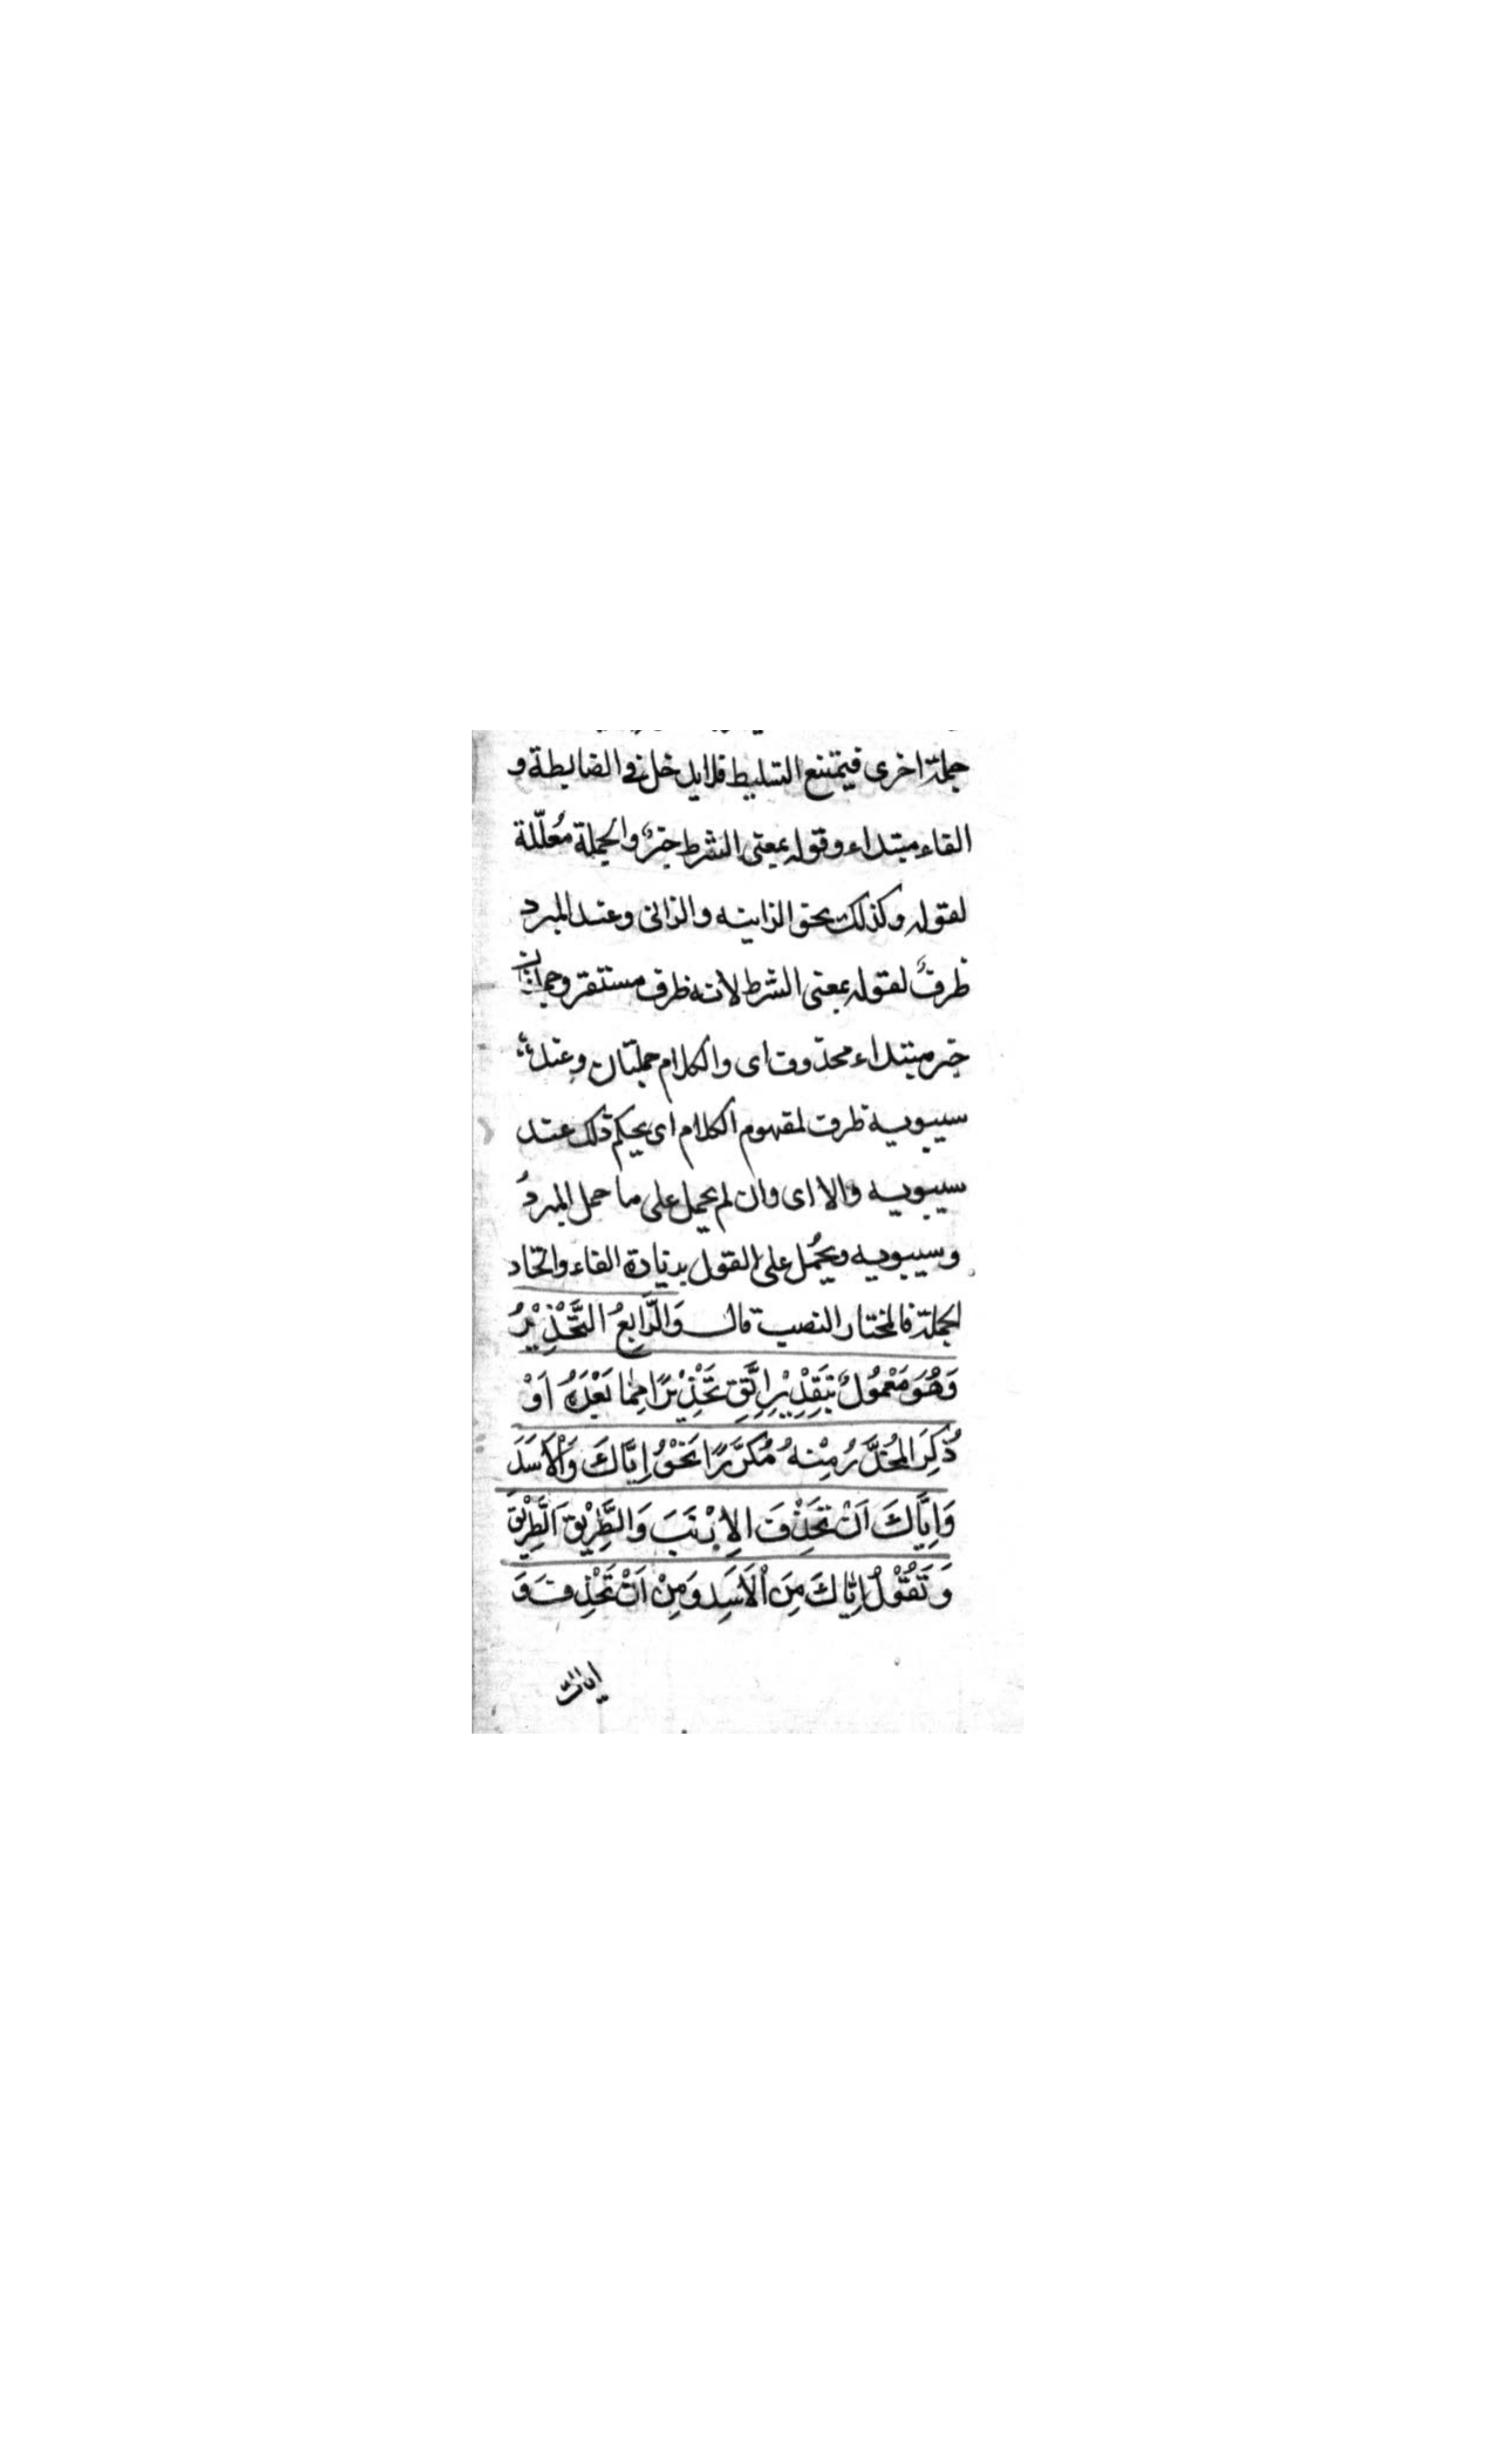 جملة اخرى فيمتنع التسليط فلا يدخل في الضابطة و
الفاء مبتداء وقوله بمعنى الشرط خبرٌ والجملة مُعلّلة
لقوله وكذلك نحو الزانيه والزانى وعند المبرد
ظرفٌ لقوله بمعنى الشرط لانه ظرف مستقر وجملتان
خبر مبتداء محذوف اى والكلام جملتان وعند
سيبويه ظرف لمفهوم الكلام اى يحكم ذلك عند
سيبويه والا اى وان لم يحمل على ما حمل المبردُ
وسيبويه ويحُمل على القول بزيادة الفاء واتحاد
الجملة فالمختار النصب قال وَالرَّابِعُ التَّحْذِيْرُ
وَهُوَ مَعْمُولٌ بِتَقْدِيْرِ اِتَّقِ تَحْذِيْرًا مِمَّا بَعْدَهُ اَوْ
ذُكِرَ المُحَذَّرُ مِنْهُ مُكَرَّرًا نَحْوُ اِيَّاكَ وَالْاَسَدَ
وَاِيَّاكَ اَنْ تَحْذِفَ الاِرْنَبَ وَالطَّرِيْقَ اَلطَّرِيْقَ
وَتَقُوْلُ اِيَّاكَ مِنَ الْاَسَدِ وَمِنْ اَنْ تَحْذِفَ وَ
اياك